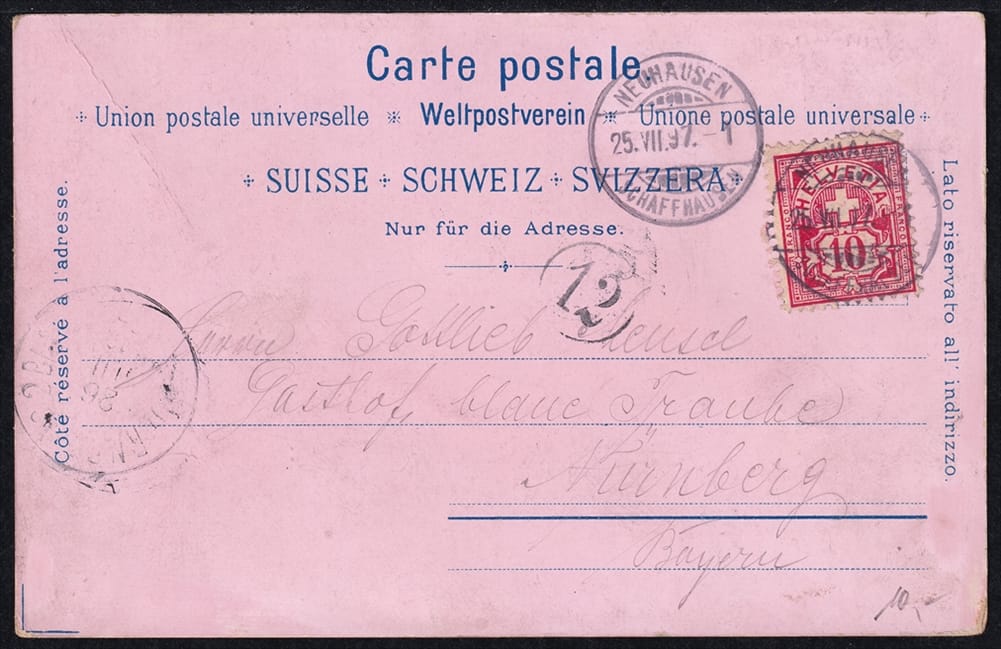 Carte postale.
Union postale universelle ※ Weltpostverein ※ Unione postale universale
SUISSE + SCHWEIZ + SVIZZERA
Nur für die Adresse.
Côté réservé à l'adresse.
Lato riservato all' indirizzo.
NEUHAUSEN
25.VII.97.-1
SCHAFFHAUSEN
HELVETIA
FRANCO
FRANCO
10
12
Herrn Gottlieb
Gasthof blaue Traube
Nürnberg
Bayern
10,-